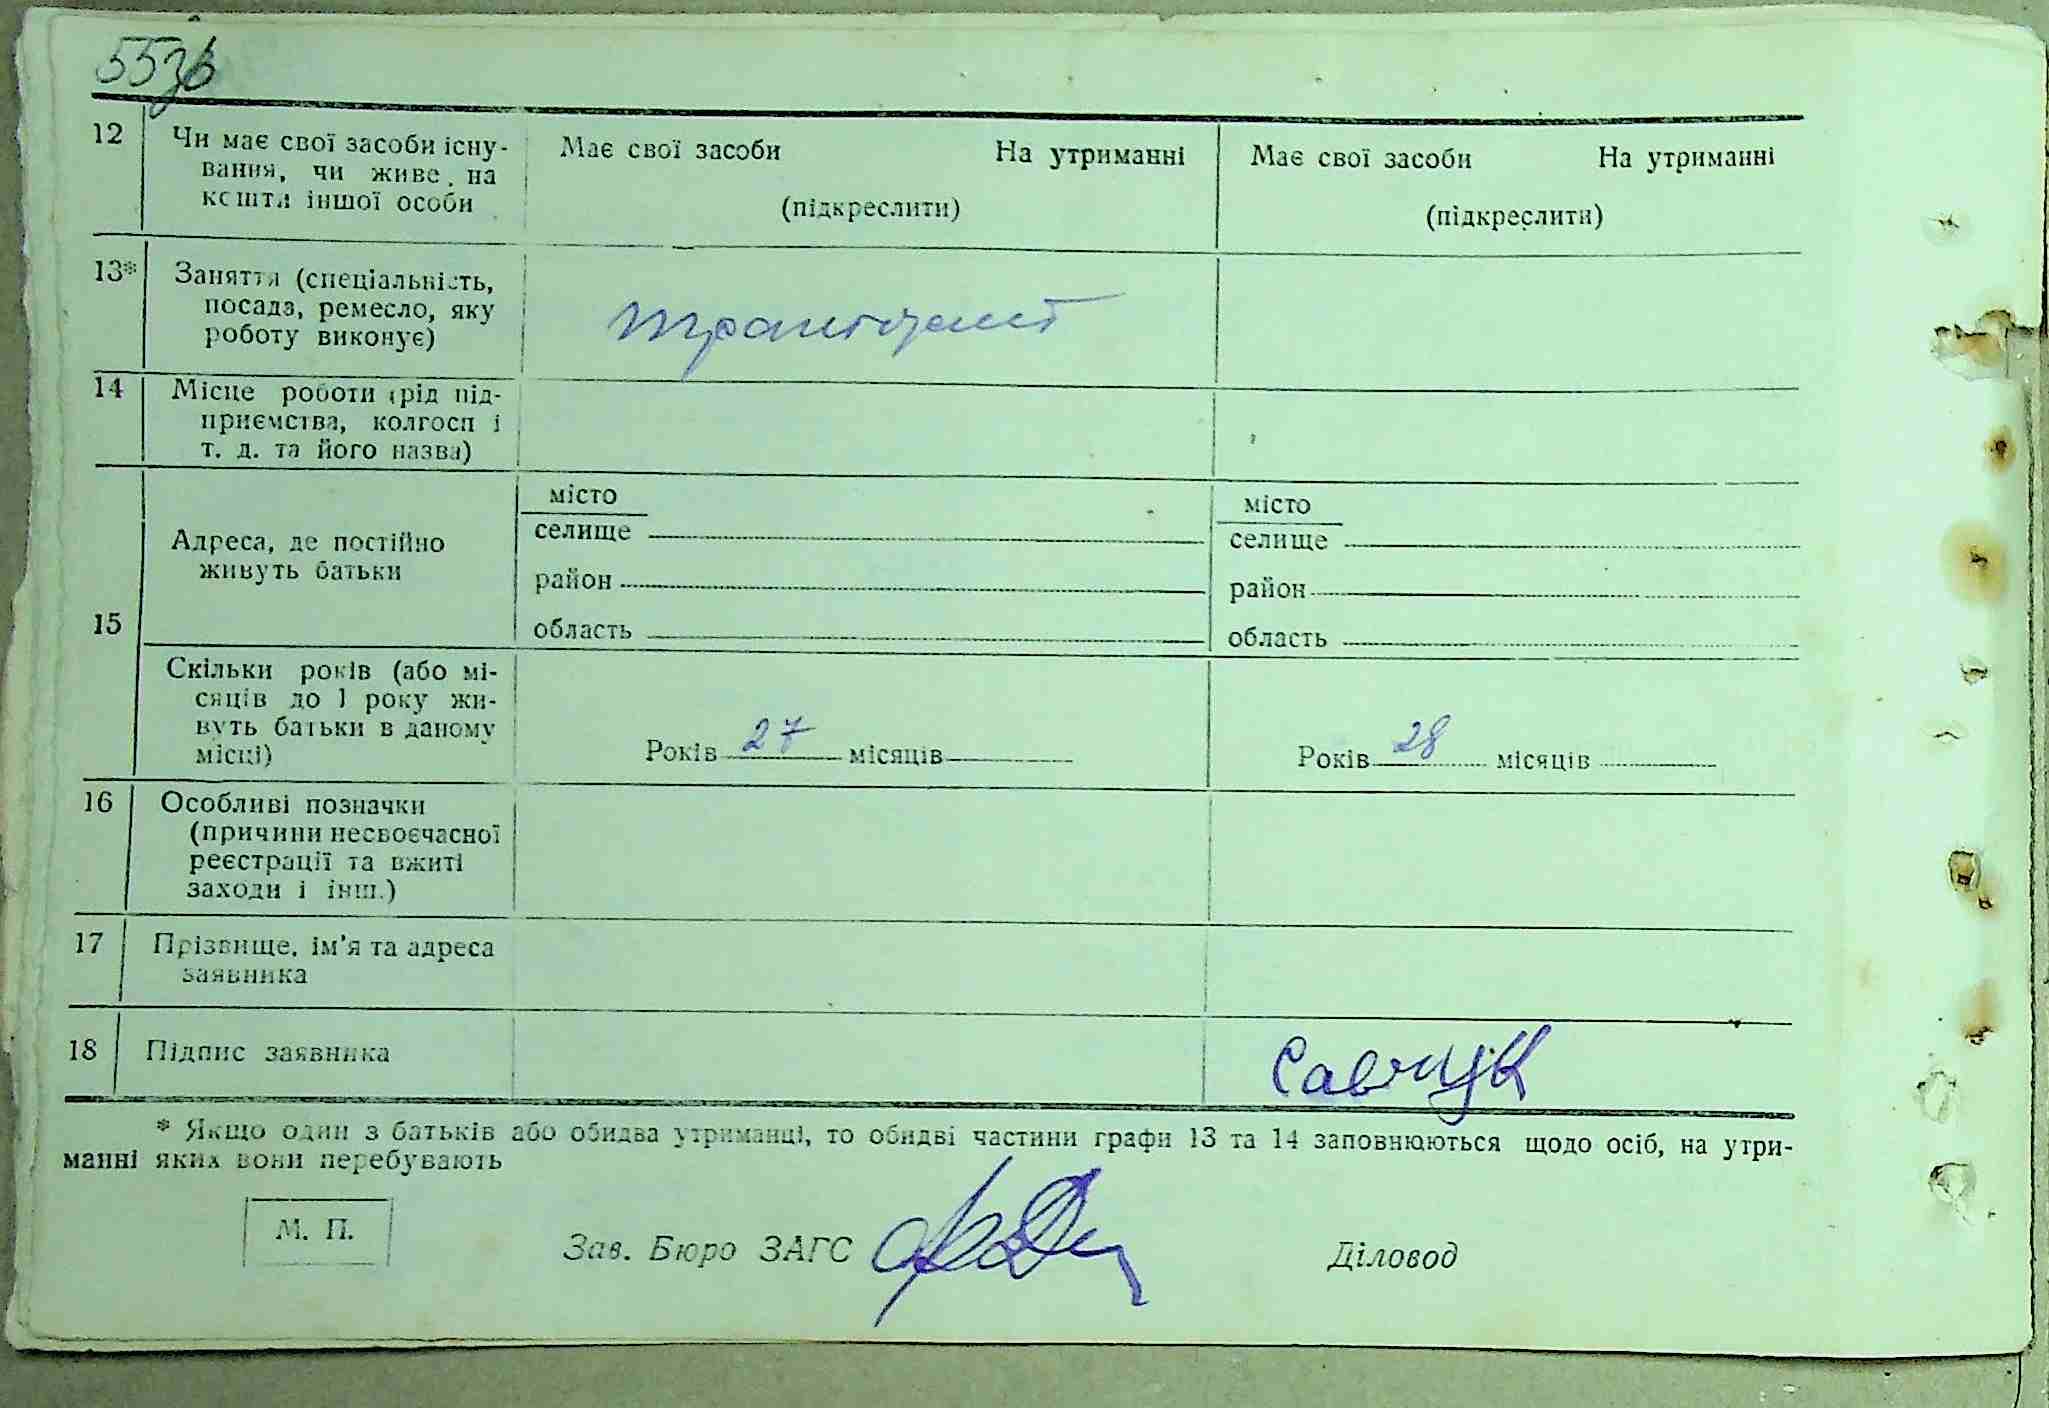 55зв
12 Чи має свої засоби існу-
вання, чи живе на
кошти іншої особи
Має свої засоби На утриманні
(підкреслити)
Має свої засоби На утриманні
(підкреслити)
13* Заняття (спеціальність,
посада, ремесло, яку
роботу виконує)
14 Місце роботи (рід під-
приємства, колгосп і
т. д. та його назва)
15
Адреса, де постійно
живуть батьки
місто
селище
район
область
місто
селище
район
область
Скільки років (або мі-
сяців до 1 року жи-
вуть батьки в даному
місці)
Років 27 місяців
Років 28 місяців
16 Особливі позначки
(причини несвоєчасної
реєстрації та вжиті
заходи і інш.)
17 Прізвище, ім'я та адреса
заявника
18 Підпис заявника
Савчук
* Якщо один з батьків або обидва утриманці, то обидві частини графи 13 та 14 заповнюються щодо осіб, на утри-
манні яких вони перебувають
М. П.
Зав. Бюро ЗАГС
Діловод